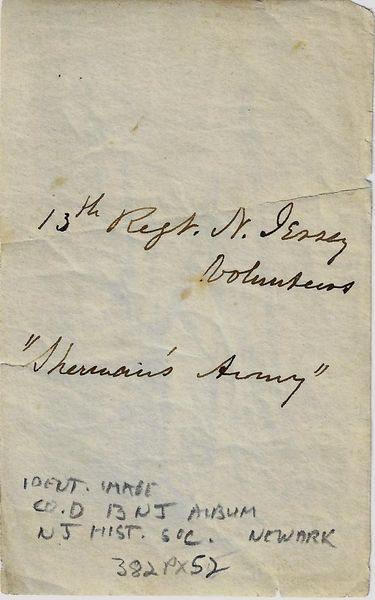 13th Regt. N. Jersey
Volunteers
"Sherman's Army"
IDENT. IMAGE
CO. D 13 NJ ALBUM
NJ HIST. SOC. NEWARK
382PX52